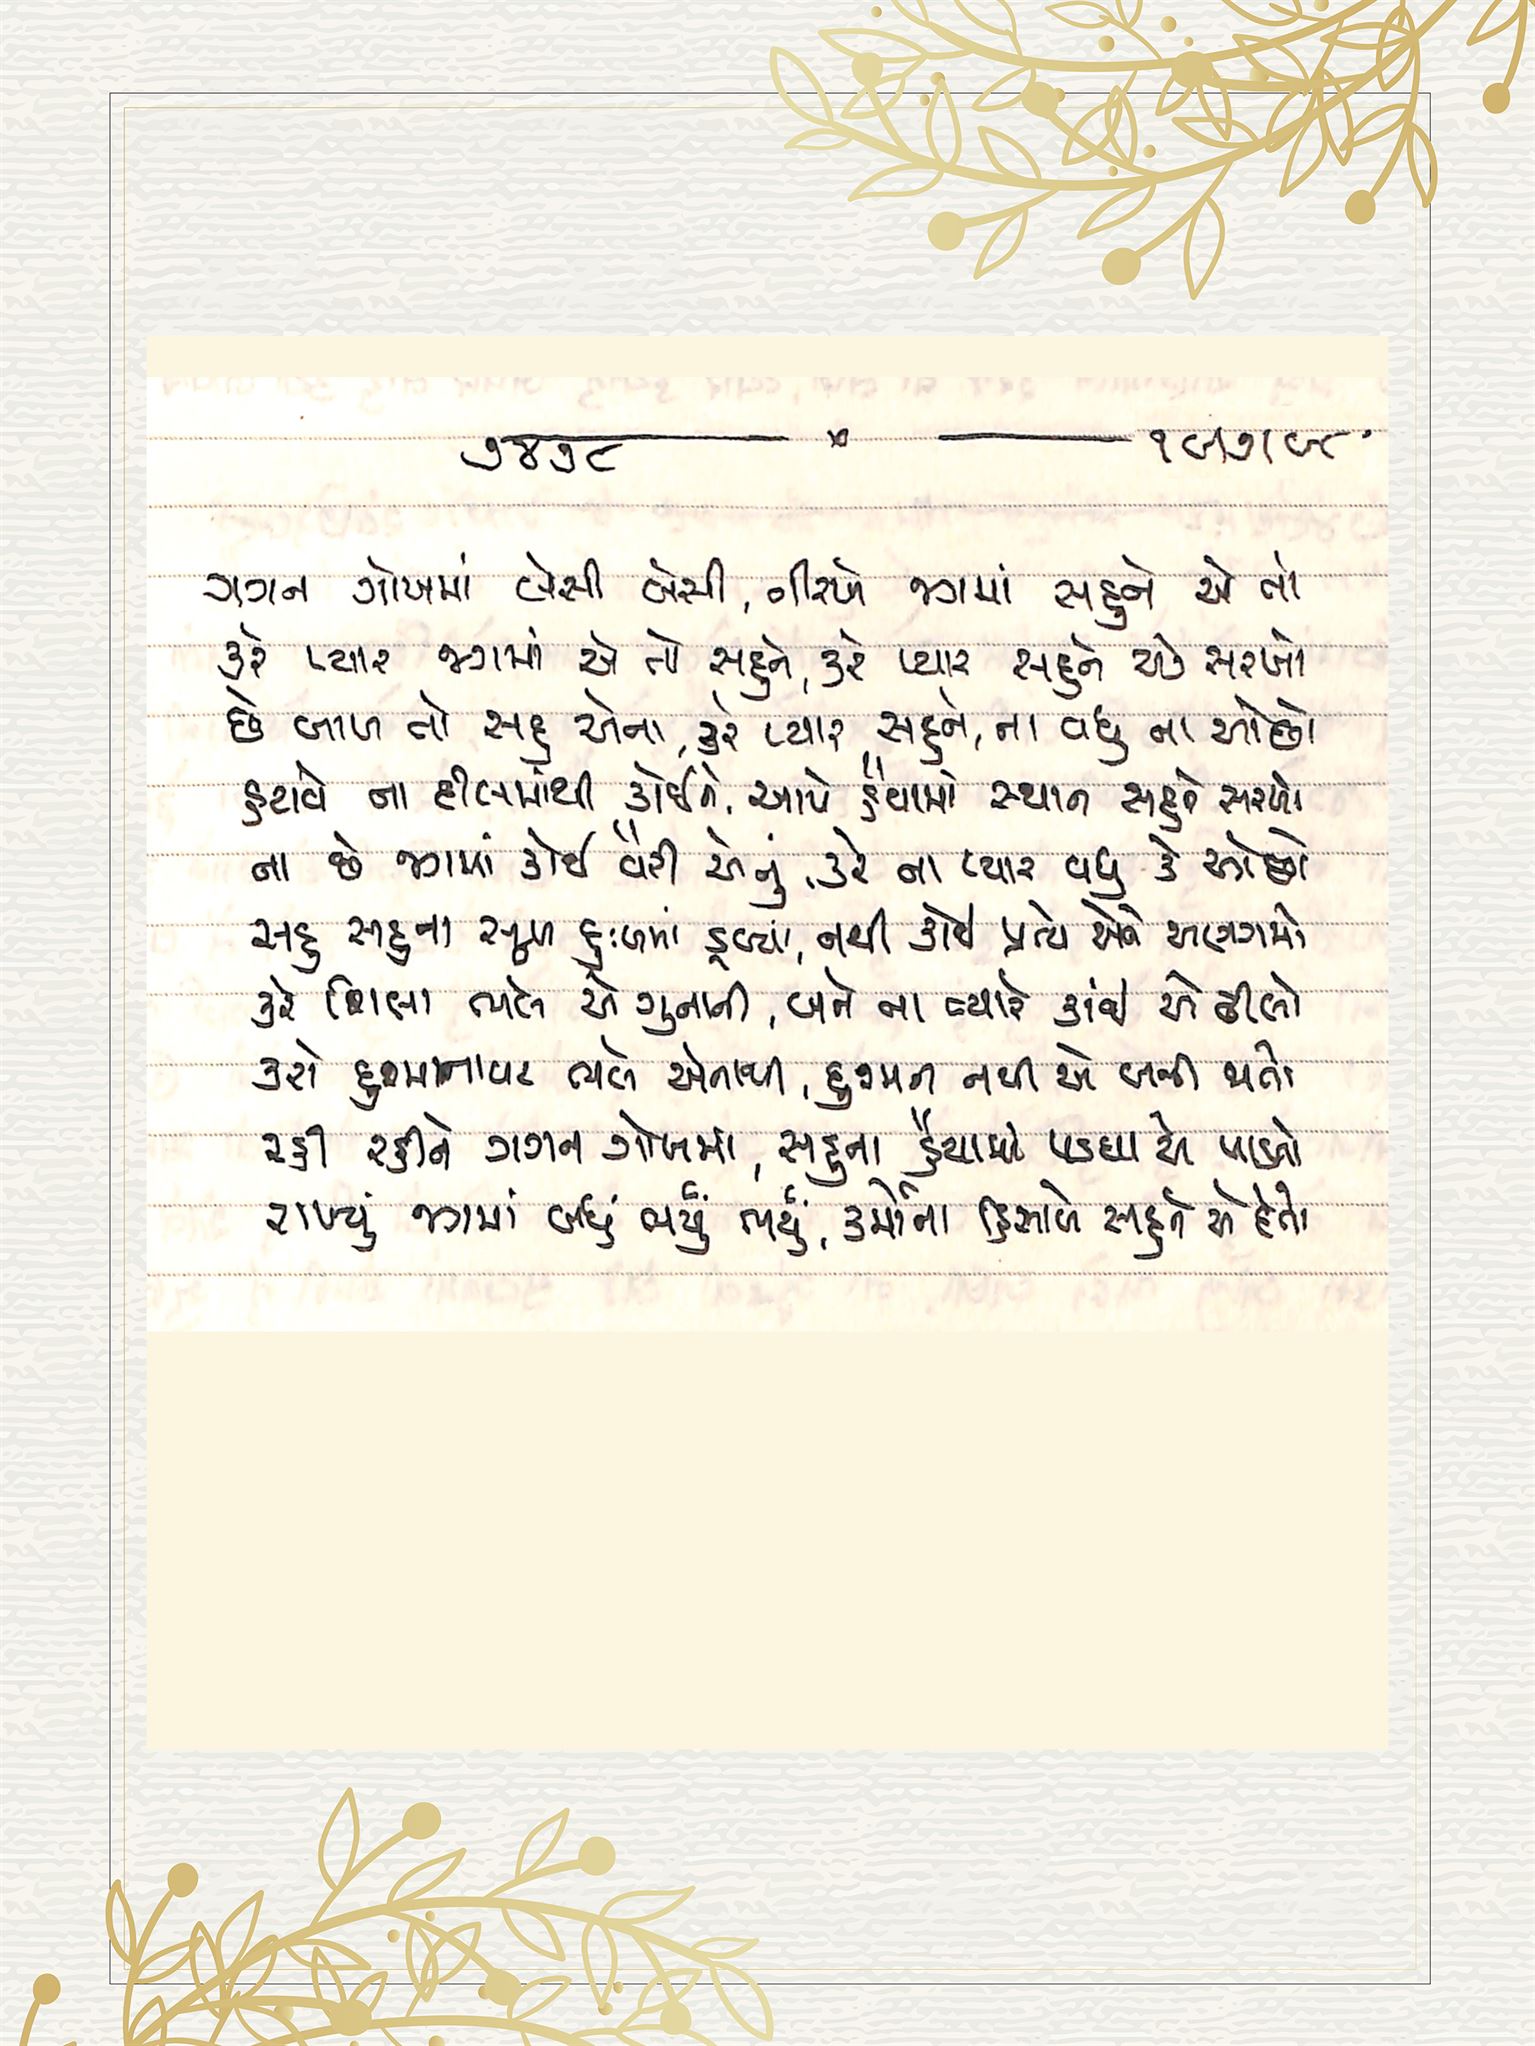 ૭૪૭૮
ગગન ગોખમાં બેસી બેસી, નીરખે જગમાં સહુને એ તો
કરે પ્યાર જગમાં એ તો સહુને, કરે પ્યાર સહુને એ સરખો
છે બાળ તો સહુ એના, કરે પ્યાર સહુને, ના વધુ ના ઓછો
હટાવે ના દીલમાંથી કોઈને, આપે હૈયામાં સ્થાન સહુને સરખો
ના છે જગમાં કોઈ વૈરી એનું, કરે ના પ્યાર વધુ કે ઓછો
સહુ સહુના સુખ દુઃખમાં ડૂબ્યાં, નથી કોઈ પ્રત્યે એને અણગમો
કરે શિક્ષા ભલે એ ગુનાની, બને ના ત્યારે કાંઈ એ ઢીલો
કરો દુશ્માનાવટ ભલે એનાથી, દુશ્મન નથી એ બની થતો
રહી રહીને ગગન ગોખમાં, સહુના હૈયામાં પડઘા એ પાડતો
રાખ્યું જગમાં બધું ભર્યું ભર્યું, કર્મોના હિસાબે સહુને એ દેતો